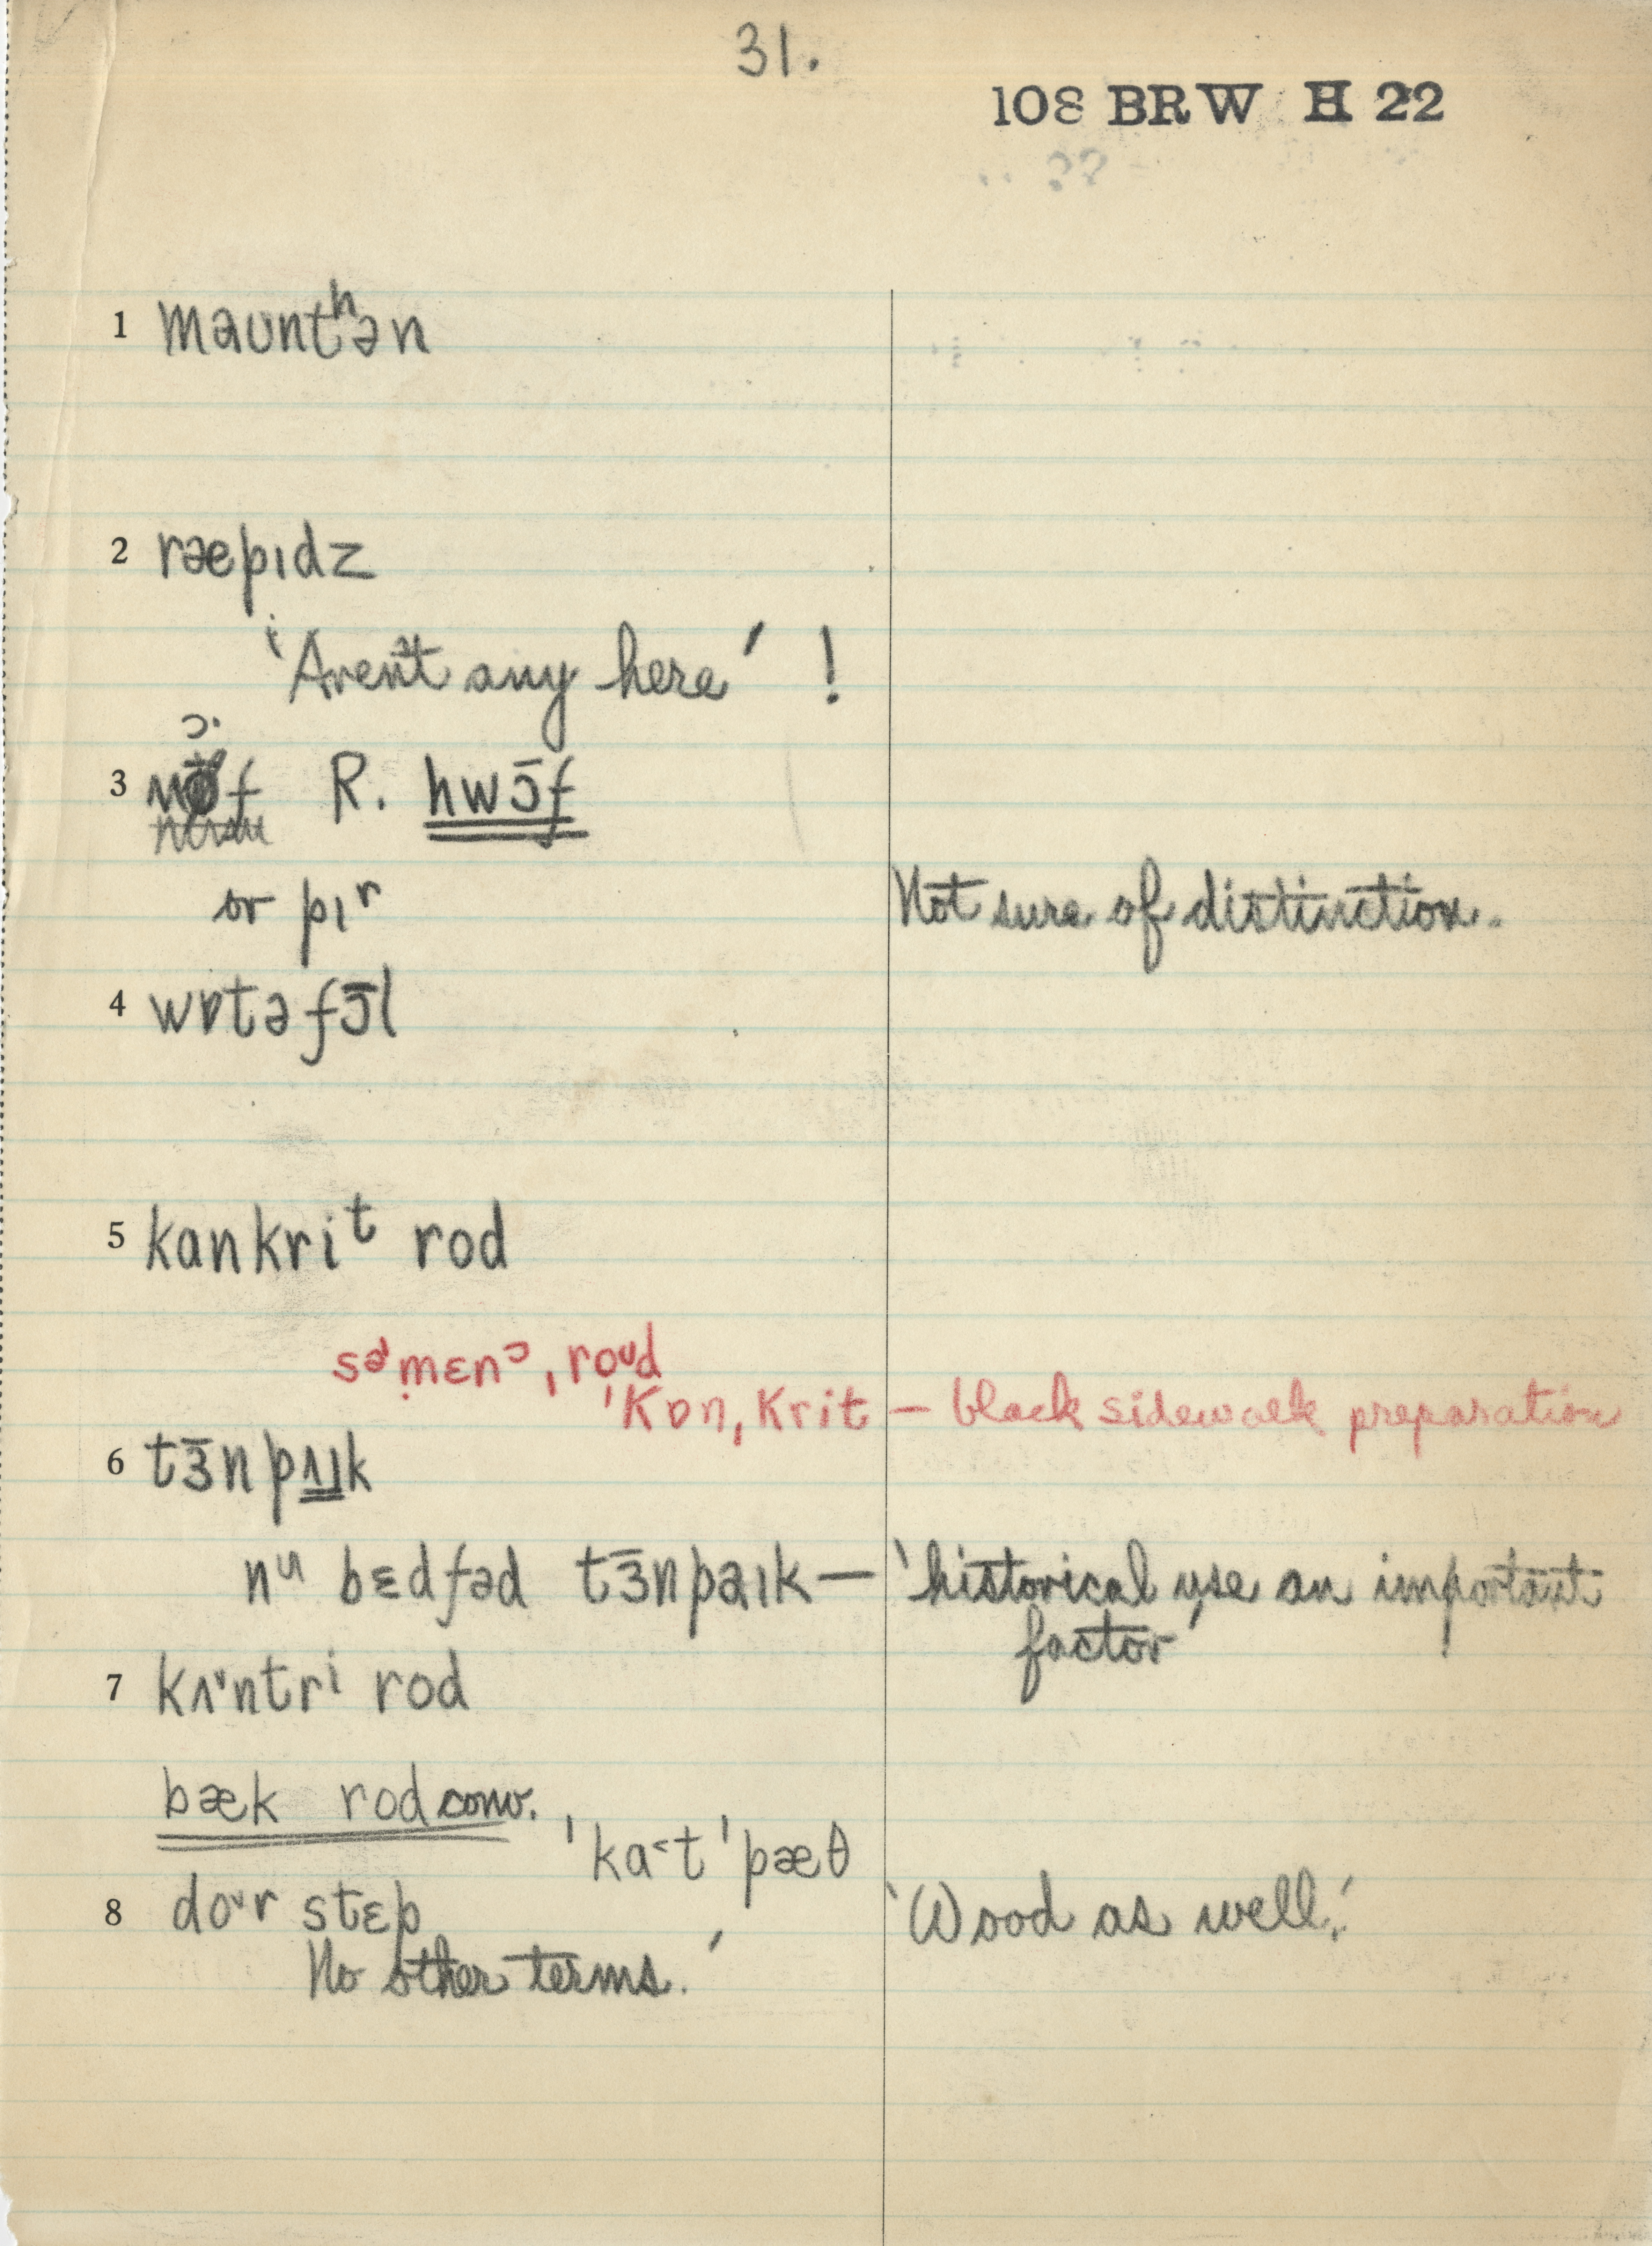 31.
108 BRW H 22
1 maʊntʰən
2 ræpɪdz
'Aren't any here' !
3 R. hwɔ̄f
or pɪʳ Not sure of distinction.
4 wɒtəfɔ̄l
5 kankriᵗ rod
ˈkɒnˌkrit – black sidewalk preparation
6 tɜ̄npʌɪk
nᵘ bɛdfəd tɜ̄npaɪk – 'historical use an important
factor'
7 kʌ˞ntrⁱ rod
bæk rod conv.
ˈka˂tˈpæθ
8 do˞r stɛp 'Wood as well.'
No other terms.'